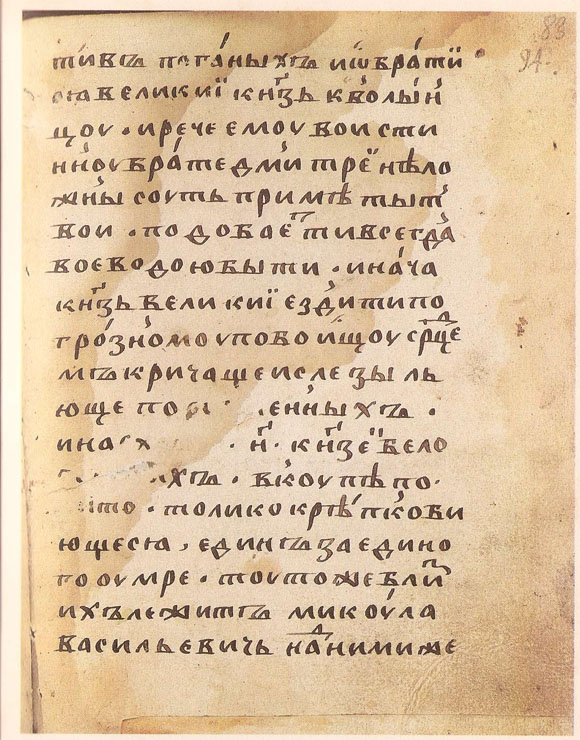 94
тивъ поганыхъ и ѡбрати
сѧ великиї кнѧзь к волын
цоу · и рече емоу воисти
нноу брате дми трeї нѣло
жны соуть примѣты т
вои · подобаеⷮ ти всегда
воеводою быти · и нача
кн҃зь великиї ездити по
грозномоу побоищоу срⷣце
мъ кричаще и слезы ль
юще по енныхъ ·
ина н҃ · кн҃зеї бело
хъ · вкоупѣ по
толико крѣпко би
ющесѧ , единъ за едино
го оумре · тоу то же бли
ихъ лежитъ микоула
васильевичь наⷣ ними же